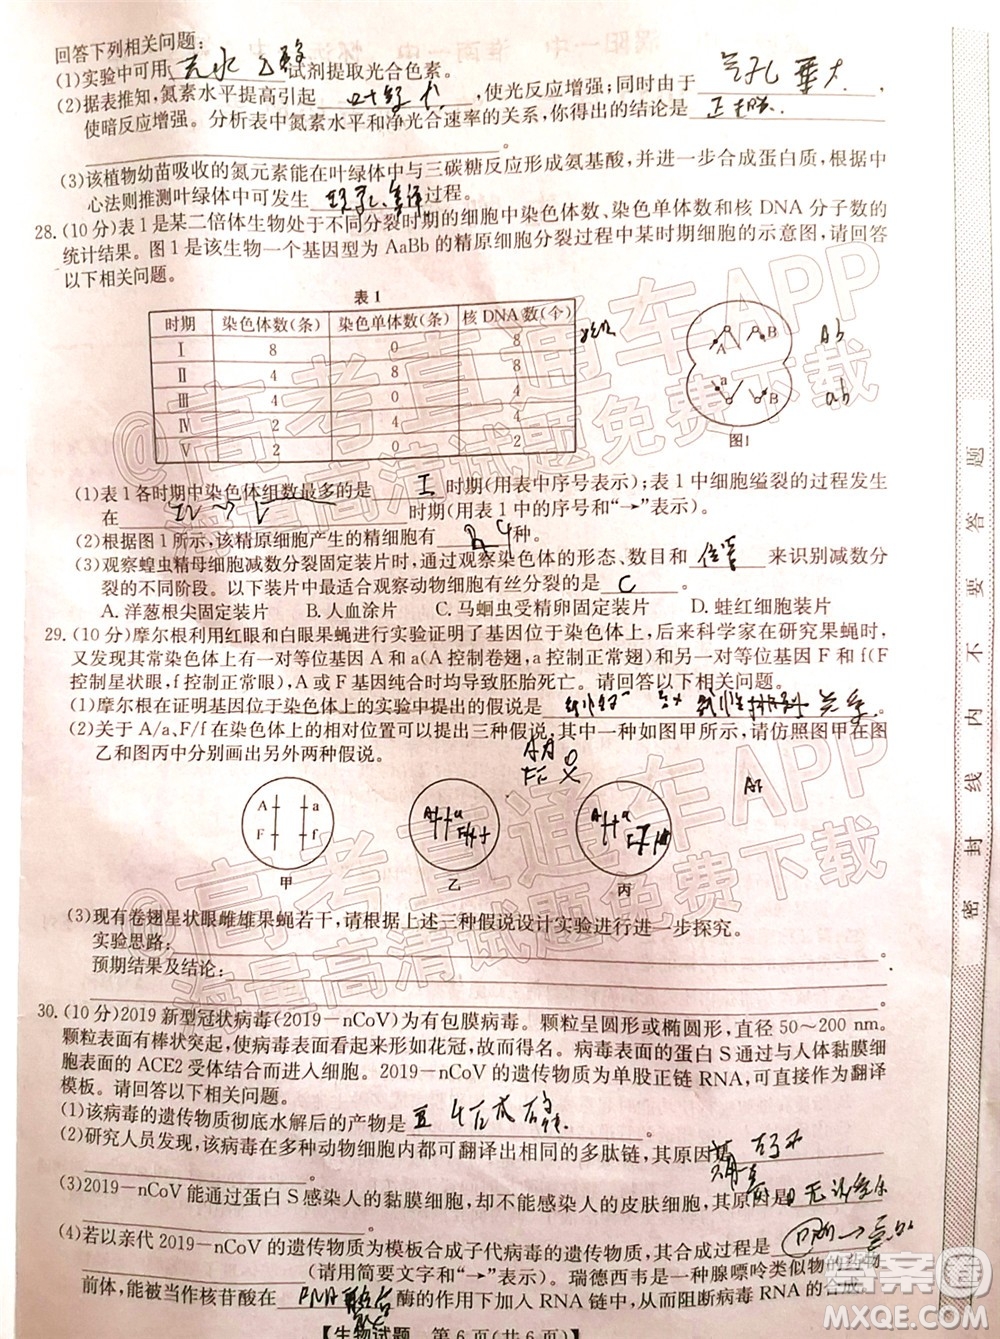 回答下列相关问题:
(1)实验中可用 无水乙醇 试剂提取光合色素。
(2)据表推知,氮素水平提高引起 叶绿 ,使光反应增强;同时,气孔 大,
使暗反应增强。分析表中氮素水平和净光合速率的关系,你得出的结论是
(3)该植物幼苗吸收的氮元素能在叶绿体中与三碳糖反应形成氨基酸,并进一步合成蛋白质,根据中
心法则推测叶绿体中可发生 过程。
28.(10分)表1是某二倍体生物处于不同分裂时期的细胞中染色体数、染色单体数和核DNA分子数的
统计结果。图1是该生物一个基因型为AaBb的精原细胞分裂过程中某时期细胞的示意图,请回答
以下相关问题。
表1
时期 染色体数(条) 染色单体数(条) 核DNA数(个)
Ⅰ 8 0 8
Ⅱ 4 8 8
Ⅲ 4 0 4
Ⅳ 2 4 4
Ⅴ 2 0 2
A B
a B
Ab
ab
图1
(1)表1各时期中染色体组数最多的是 Ⅰ 时期(用表中序号表示);表1中细胞缢裂的过程发生
在 时期(用表1中的序号和“→”表示)。
(2)根据图1所示,该精原细胞产生的精细胞有 4 种。
(3)观察蝗虫精母细胞减数分裂固定装片时,通过观察染色体的形态、数目和 位置 来识别减数分
裂的不同阶段。以下装片中最适合观察动物细胞有丝分裂的是 C 。
A.洋葱根尖固定装片 B.人血涂片 C.马蛔虫受精卵固定装片 D.蛙红细胞装片
29.(10分)摩尔根利用红眼和白眼果蝇进行实验证明了基因位于染色体上,后来科学家在研究果蝇时,
又发现其常染色体上有一对等位基因A和a(A控制卷翅,a控制正常翅)、一对等位基因F和f(F
控制星状眼,f控制正常眼),A或F基因纯合时均导致胚胎死亡。请回答以下相关问题。
(1)摩尔根在证明基因位于染色体上的实验中提出的假说是
(2)关于A/a、F/f在染色体上的相对位置可以提出三种假说,其中一种如图甲,请仿照图甲在图
乙和图丙中分别画出另外两种假说。
A a
F f
甲 乙 丙
(3)现有卷翅星状眼雌雄果蝇若干,请根据上述三种假说设计实验进行进一步探究。
实验思路:
预期结果及结论:
30.(10分)2019新型冠状病毒(2019-nCoV)为有包膜病毒。颗粒呈圆形或椭圆形,直径50~200 nm。
颗粒表面有棒状突起,使病毒表面看起来形如花冠,故而得名。病毒表面的蛋白S通过与人体黏膜细
胞上的ACE2受体结合而进入细胞。2019-nCoV的遗传物质为单股正链RNA,可直接作为翻译
模板。请回答以下相关问题。
(1)该病毒的遗传物质彻底水解后的产物是 。
(2)研究人员发现,该病毒在多种动物细胞内都可翻译出相同的多肽链,其原因
(3)2019-nCoV能通过蛋白S感染人的黏膜细胞,但不能感染人的皮肤细胞,其原因是
(4)若以亲代2019-nCoV的遗传物质为模板合成子代病毒的遗传物质,其合成过程是
(用简要文字和“→”表示)。瑞德西韦是一种腺嘌呤类似物的药物
前体,能被当作核苷酸在 RNA聚合 酶的作用下加入RNA链,从而阻断病毒RNA的合成。
【生物试题 第6页(共6页)】
密封线内不要答题
@高考直通车APP
海量高清试题免费下载
@高考直通车APP
海量高清试题免费下载
答案圈
MXQE.COM